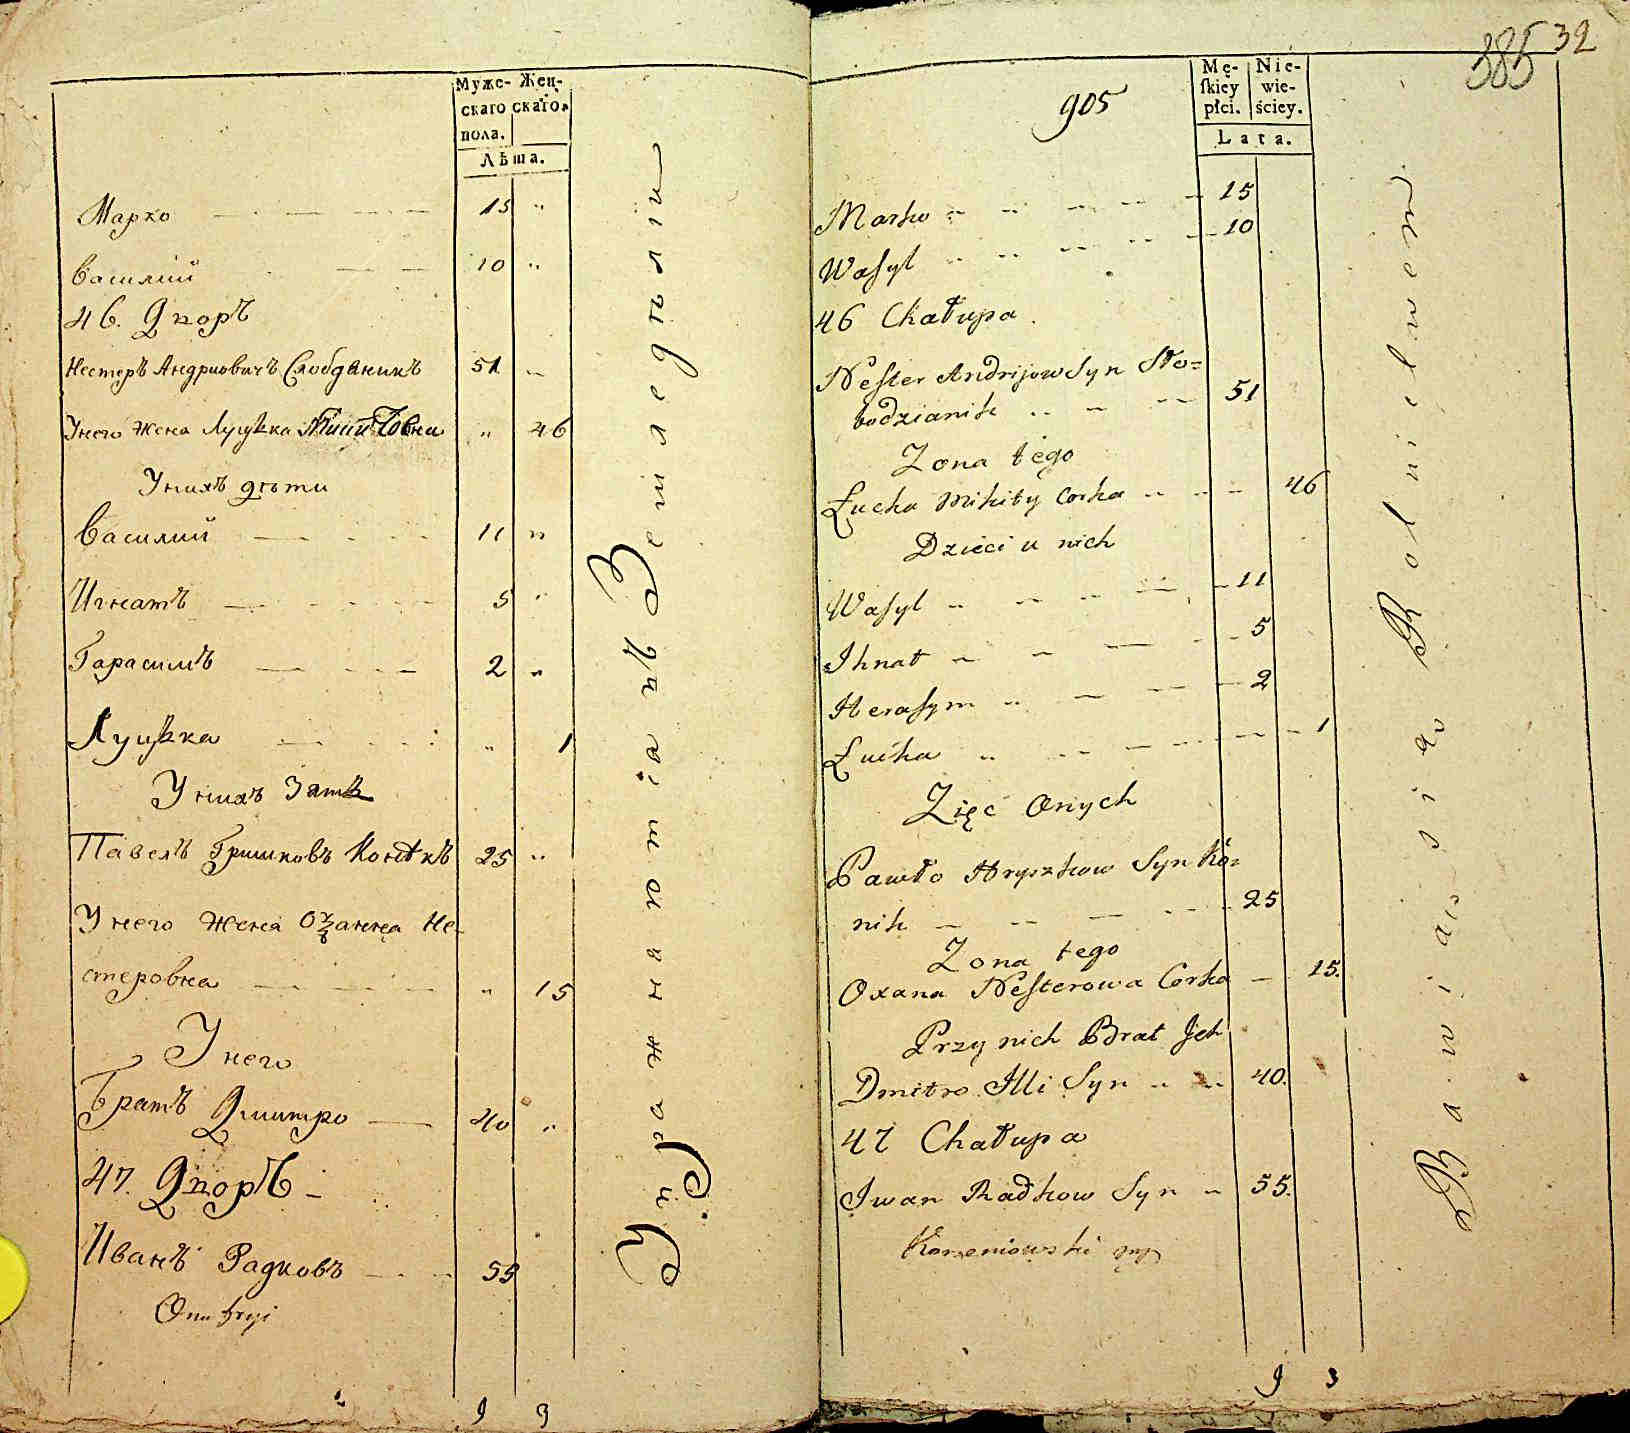 Муже- Жен-
скаго скаго
пола.
Лѣта.
Марко 15 "
Василий 10 "
46. Дворъ
Нестеръ Андриовичъ Слободяникъ 51 "
У него жена Луцѣка 46
У нихъ дѣти
Василий 11 "
Игнатъ 5 "
Гарасимъ 2 "
Луцѣка " 1
У нихъ Зять
Павелъ Гришковъ 25 "
У него жена Не-
стеровна " 15
У него
Братъ Дмитро 40 "
47. Дворъ
Иванъ Радковъ 55
9 3
Упражняются въ Земледѣлии
385 32
905
Mę- Nie-
skiey wie-
płci. ściey.
Lata.
Marko 15
Wasyl 10
46 Chałupa
Nester Andrijow Syn Sło=
bodzianik 51
Zona tego
Łucka Mikity Corka 46
Dzieci u nich
Wasyl 11
Ihnat 5
Herasym 2
Łucka 1
Zięć Onych
Pawło Hryszkow Syn Ko=
nik 25
Zona tego
Oxana Nesterowa Corka 15.
Przy nich Brat Jch
Dmitro Illi Syn 40.
47 Chałupa
Iwan Radkow Syn 55.
Korzeniowski
9 3
Bawią się Rolnictwem